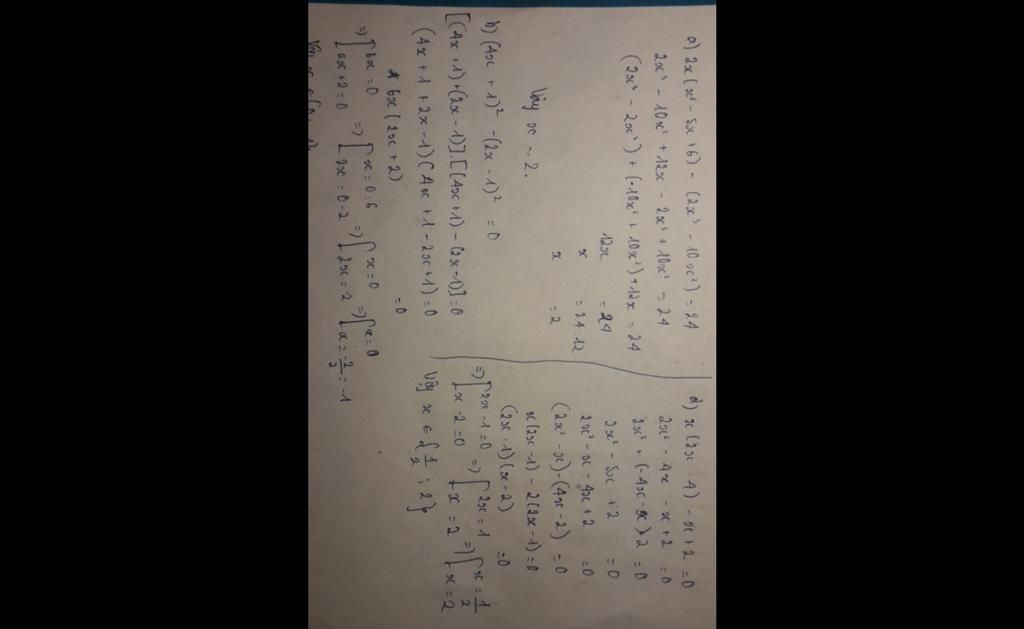 a) 2x(x² - 5x + 6) - (2x³ - 10x²) = 24
2x³ - 10x² + 12x - 2x³ + 10x² = 24
(2x³ - 2x³) + (-10x² + 10x²) + 12x = 24
12x = 24
x = 24:12
x = 2
Vậy x = 2.
b) (4x + 1)² - (2x - 1)² = 0
[(4x + 1) + (2x - 1)].[(4x + 1) - (2x - 1)] = 0
(4x + 1 + 2x - 1)(4x + 1 - 2x + 1) = 0
6x(2x + 2) = 0
=> [6x = 0 => [x = 0:6 => [x = 0 => [x = 0
[2x + 2 = 0 [2x = 0 - 2 [2x = -2 [x = -2/2 = -1
d) x(2x - 4) - x + 2 = 0
2x² - 4x - x + 2 = 0
2x² + (-4x - x) + 2 = 0
2x² - 5x + 2 = 0
2x² - x - 4x + 2 = 0
(2x² - x) - (4x - 2) = 0
x(2x - 1) - 2(2x - 1) = 0
(2x - 1)(x - 2) = 0
=> [2x - 1 = 0 => [2x = 1 => [x = 1/2
[x - 2 = 0 [x = 2 [x = 2
Vậy x ∈ {1/2 ; 2}